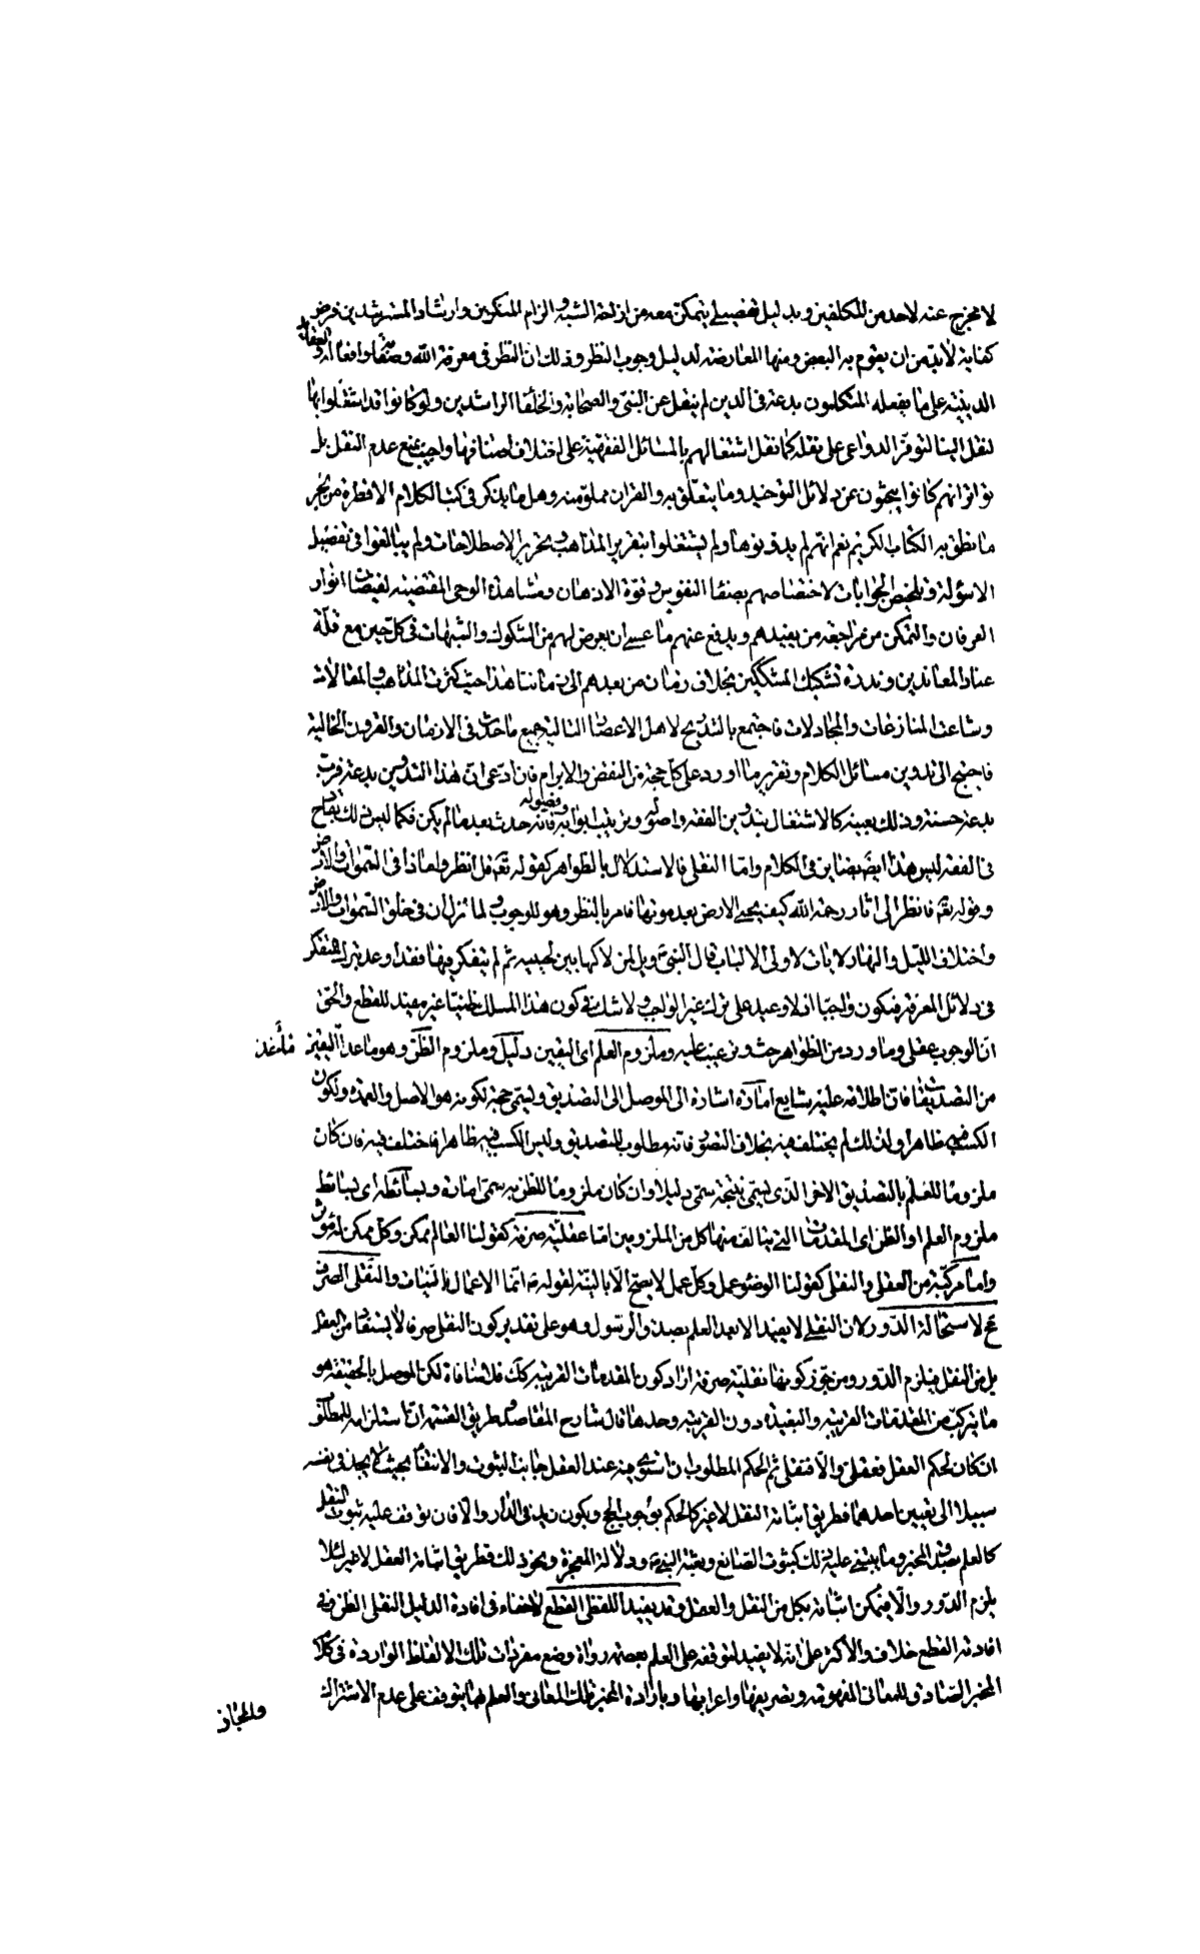 لا مخرج عنه لاحد من المكلفين وبدليل تفصيلى يتمكن معه من ازاحة الشبه والزام المنكرين وارشاد المسترشدين فرض
كفاية لا بد من ان يقوم به البعض ومنها المعارضه لدليل وجوب النظر وذلك ان النظر فى معرفة الله وصفاته وافعاله والعقائد
الدينية على ما يفعله المتكلمون بدعة فى الدين لم ينقل عن النبى والصحابة والخلفا الراشدين ولو كانوا قد اشتغلوا بها
لنقل الينا لتوفر الدواعى على نقله كما نقل اشتغالهم بالمسائل الفقهية على اختلاف اصنافها واجيب بمنع عدم النقل بل
تواتر انهم كانوا يبحثون عن دلائل التوحيد وما يتعلق به والقران مملو منه وهل ما يذكر فى كتب الكلام الا قطرة من بحر
ما نطق به الكتاب الكريم نعم انهم لم يدونوها ولم يشتغلوا بتقرير المذاهب وتحرير الاصطلاحات ولم يبالغوا فى تفصيل
الاسؤلة وتلخيص الجوابات لاختصاصهم بصفا النفوس وقوة الاذهان ومشاهدة الوحى المقتضيه لفيضان انوار
العرفان والتمكن من مراجعة من يفيدهم ويدفع عنهم ما عسى ان يعرض لهم من الشكوك والشبهات فى كل حين مع قلة
عناد المعاندين وندرة تشكيك المشككين بخلاف زمان من بعدهم الى زماننا هذا حيث كثرت المذاهب والمقالات
وشاعت المنازعات والمجادلات فاجتمع بالتدريج لاهل الاعصار التالية جميع ما حدث فى الازمان والقرون الخالية
فاحتيج الى تدوين مسائل الكلام وتقرير ما اورد على كل حجة من النقض والابرام فان ادعى ان هذا التدوين بدعة فرب
بدعة حسنة وذلك بعينه كالاشتغال بتدوين الفقه واصوله وترتيب ابوابه وفصوله فانه حدث بعد ما لم يكن فكما ليس ذلك بقادح
فى الفقه ليس هذا ايضا بضاير فى الكلام واما النقلى فالاستدلال بالظواهر كقوله تعالى قل انظروا ماذا فى السموات والارض
وقوله تعالى فانظر الى اثار رحمة الله كيف يحيى الارض بعد موتها فامر بالنظر وهو للوجوب ولما نزل ان فى خلق السموات والارض
واختلاف الليل والنهار لايات لاولى الالباب قال النبى ويل لمن لاكها بين لحييه ثم لم يتفكر فيها فقد اوعد بترك التفكر
فى دلائل المعرفة فيكون واجبا اذ لا وعيد على ترك غير الواجب ولا شك فى كون هذا المسلك ظنيا غير مفيد للقطع والحق
ان الوجوب عقلى وما ورد من الظواهر حث وترغيب عليه وملزوم العلم اى اليقين دليل وملزوم الظن وهو ما عدا اليقين
من التصديقات فان اطلاقه عليه شايع امارة اشارة الى الموصل الى التصديق ويسمى حجة لكونه هو الاصل والعمدة ولكون
الكسب فيه ظاهرا ولذلك لم يختلف فيه بخلاف التصور فانه مطلوب للتصديق وليس الكسب فيه ظاهرا فاختلف فيه فان كان
ملزوما للعلم بالتصديق الاخر الذى يسمى نتيجة سمى دليلا وان كان ملزوما للظن به سمى امارة وبسائطه اى بسائط
ملزوم العلم او الظن اى المقدمات التى يتالف منها كل من الملزومين اما عقلية صرفة كقولنا العالم ممكن وكل ممكن له مؤثر
واما مركبة من العقلى والنقلى كقولنا الوضوء عمل وكل عمل لا يصح الا بالنية لقوله انما الاعمال بالنيات والنقلى الصرف
مح لاستحالة الدور لان النقلى لا يفيد الا بعد العلم بصدق الرسول وهو على تقدير كون النقلى صرفا لا يستفاد من العقل
بل من النقل فيلزم الدور ومن جوز كونها نقلية صرفة اراد كون المقدمات القريبة كك فلا منافاة لكن الموصل بالحقيقة هو
ما يتركب من المقدمات القريبة والبعيدة دون القريبة وحدها قال شارح المقاصد طريق القسمة ان استلزامه للمطلوب
ان كان بحكم العقل فعقلى والا فنقلى ثم الحكم المطلوب ان استوى فيه عند العقل جانبا الثبوت والانتفا بحيث لا يجد فى نفسه
سبيلا الى تعيين احدهما فطريق اثباته النقل لا غير كالحكم بوجوب الحج وبكون زيد فى الدار والا فان توقف عليه ثبوت النقل
كالعلم بصدق المخبر وما يبتنى عليه ذلك كثبوت الصانع وبعثة النبى ودلالة المعجزة ونحو ذلك فطريق اثباته العقل لا غير لئلا
يلزم الدور والا فيمكن اثباته بكل من النقل والعقل وقد يفيد اللفظى القطع لا خفاء فى افادة الدليل النقلى الظن وفى
افادته القطع خلاف والاكثر على انه لا يفيد لتوقفه على العلم بعصمة رواة وضع مفردات تلك الالفاظ الواردة فى كلام
المخبر الصادق للمعانى المفهومة وتصريفها واعرابها وبارادة المخبر تلك المعانى والعلم بها يتوقف على عدم الاشتراك
والمجاز